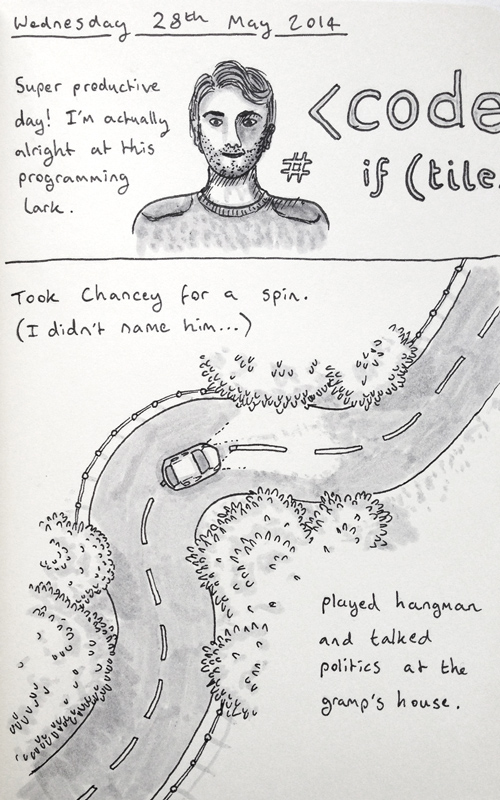 Wednesday 28th May 2014
Super productive
day! I'm actually
alright at this
programming
lark.
<code
#
if (tile.
Took Chancey for a spin.
(I didn't name him...)
played hangman
and talked
politics at the
gramp's house.